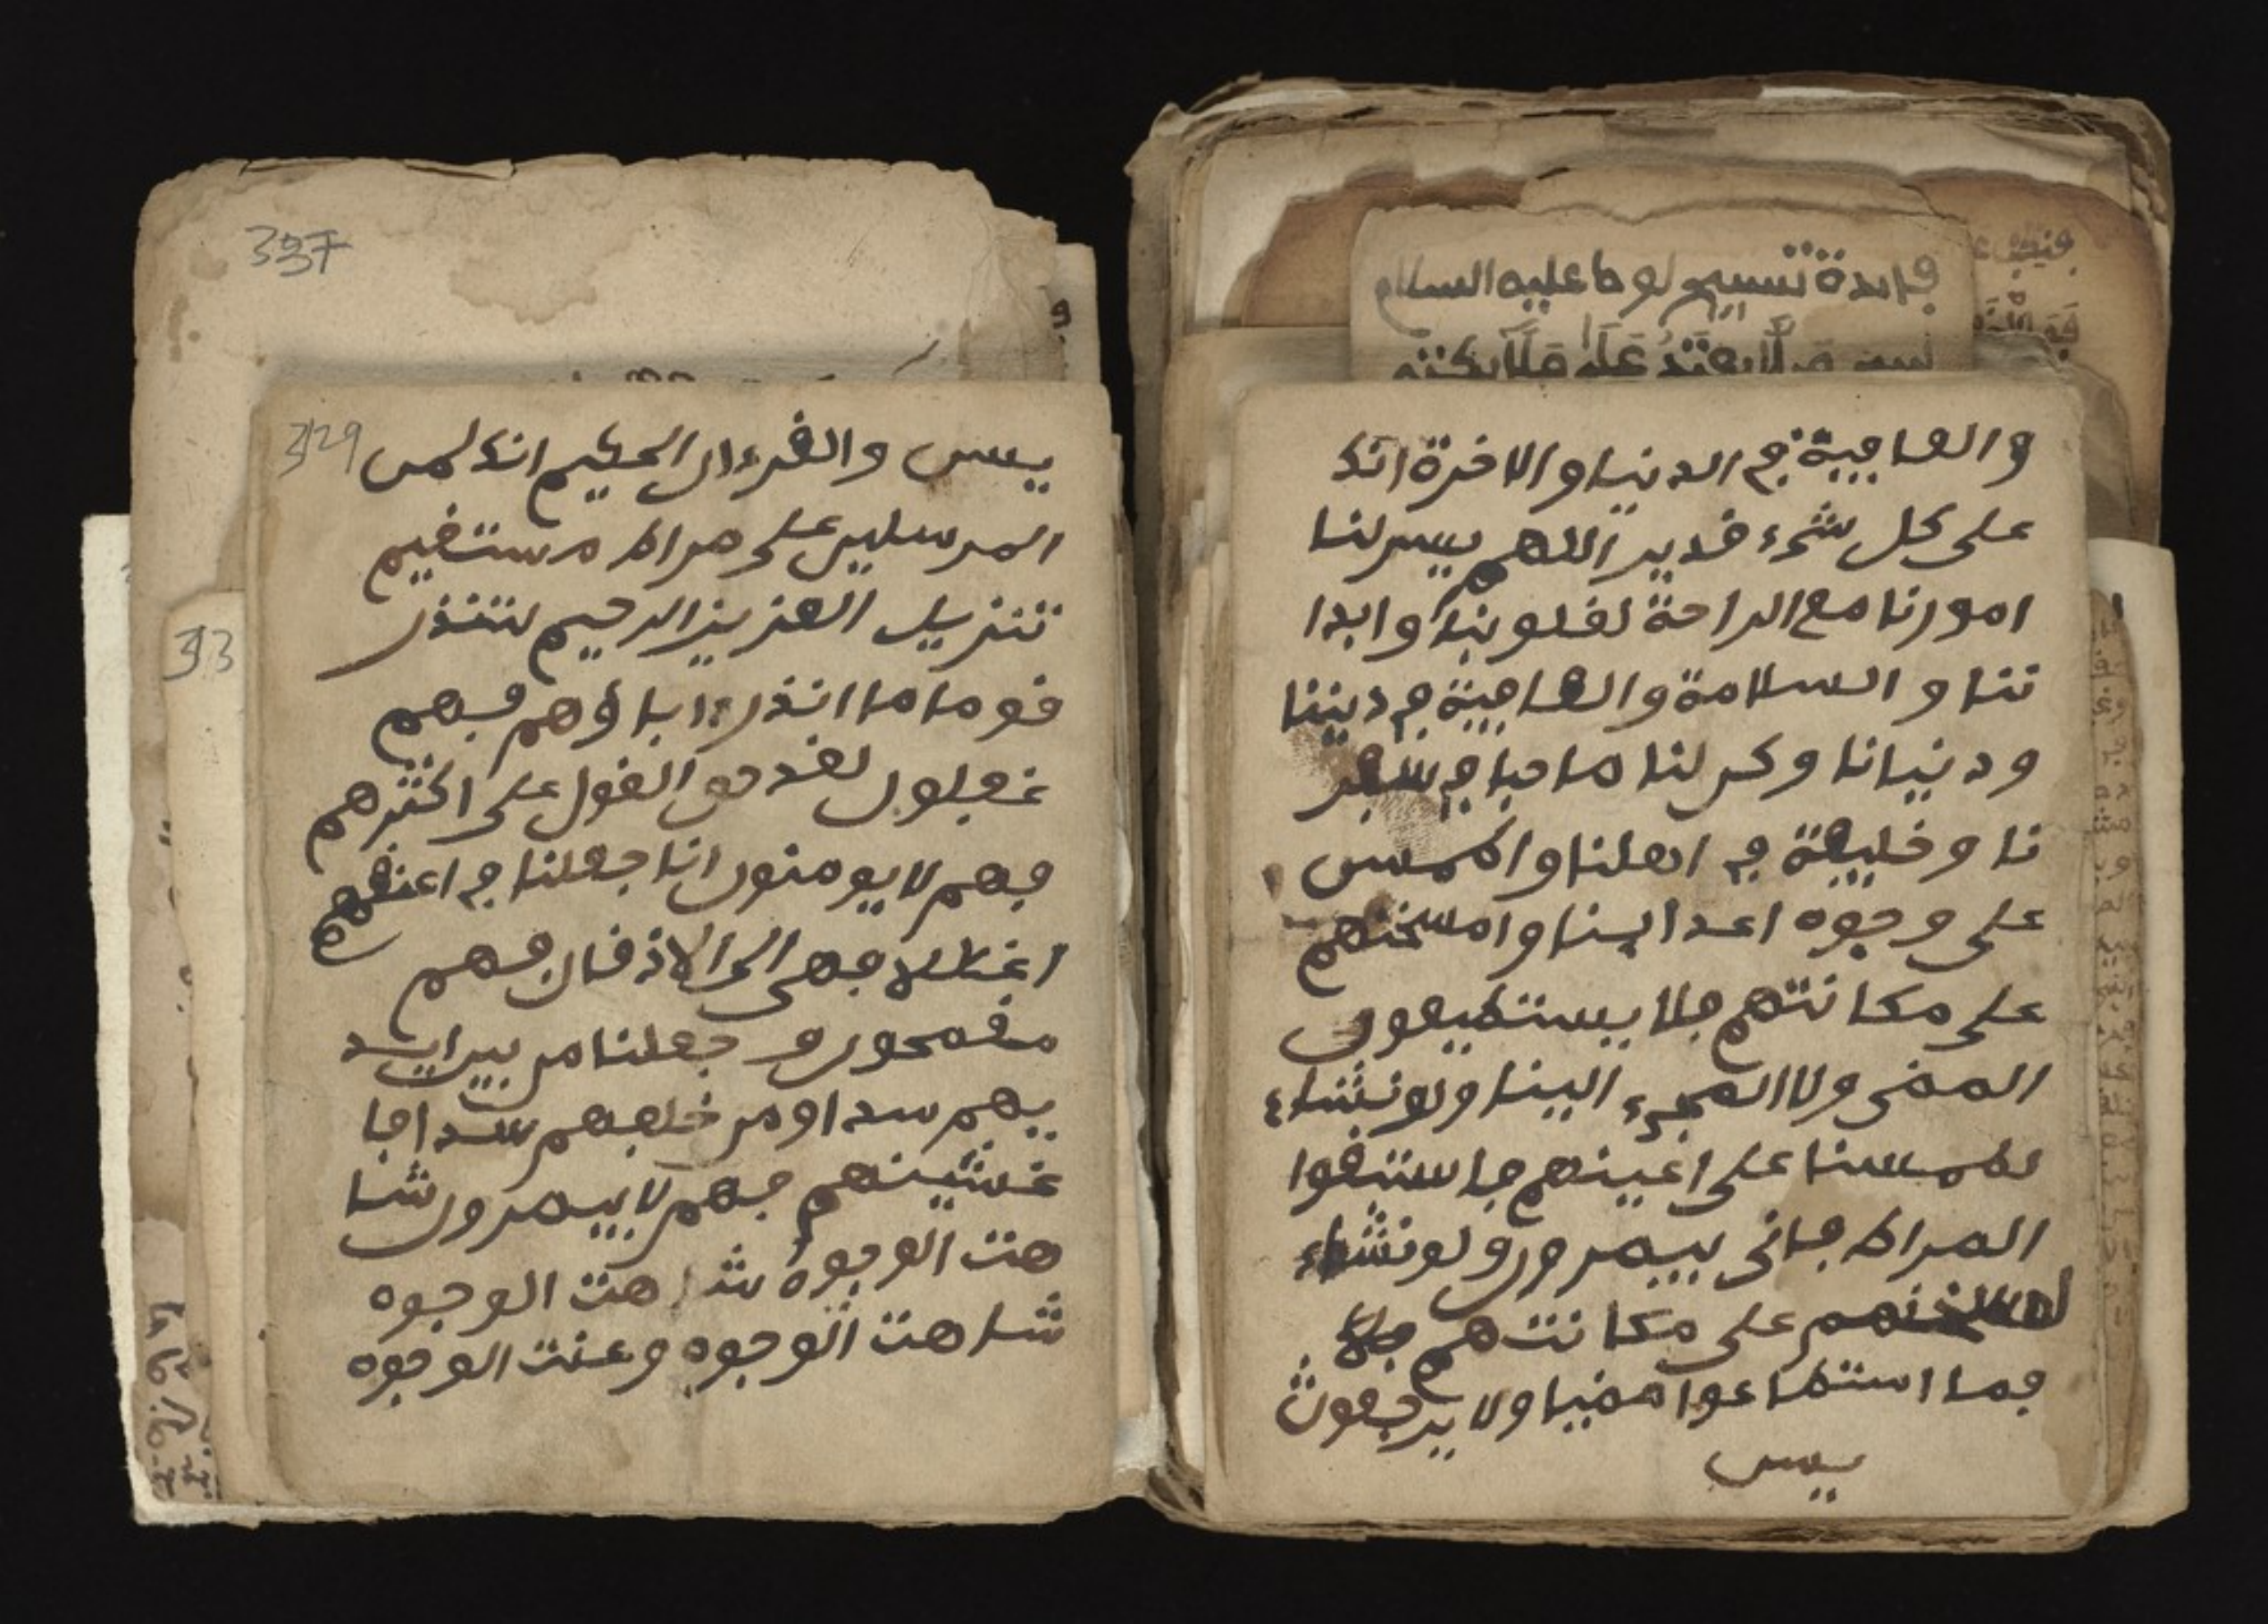 فايدة تسبيح لوط عليه السلام
والعافية في الدنيا والاخرة انك
على كل شيء قدير اللهم يسر لنا
امورنا مع الراحة لقلوبنا وابدا
ننا والسلامة والعافية في ديننا
ودنيانا وكن لنا صاحبا في سفر
نا وخليفة في اهلنا واطمس
على وجوه اعداينا وامسخهم
على مكانتهم فلا يستطيعون
المضي ولا المجيء الينا ولو نشاء
لطمسنا على اعينهم فاستبقوا
الصراط فانى يبصرون ولو نشاء
لمسخنهم على مكانتهم
فما استطاعوا مضيا ولا يرجعون
يس
337
329
يس والقرءان الحكيم انك لمن
المرسلين على صراط مستقيم
تنزيل العزيز الرحيم لتنذر
قوما ما انذر ءاباؤهم فهم
غفلون لقد حق القول على اكثرهم
فهم لا يومنون انا جعلنا في اعنقهم
اغللا فهي الى الاذقان فهم
مقمحون وجعلنا من بين ايد
يهم سدا ومن خلفهم سدا فا
غشينهم فهم لا يبصرون شا
هت الوجوه شاهت الوجوه
شاهت الوجوه وعنت الوجوه